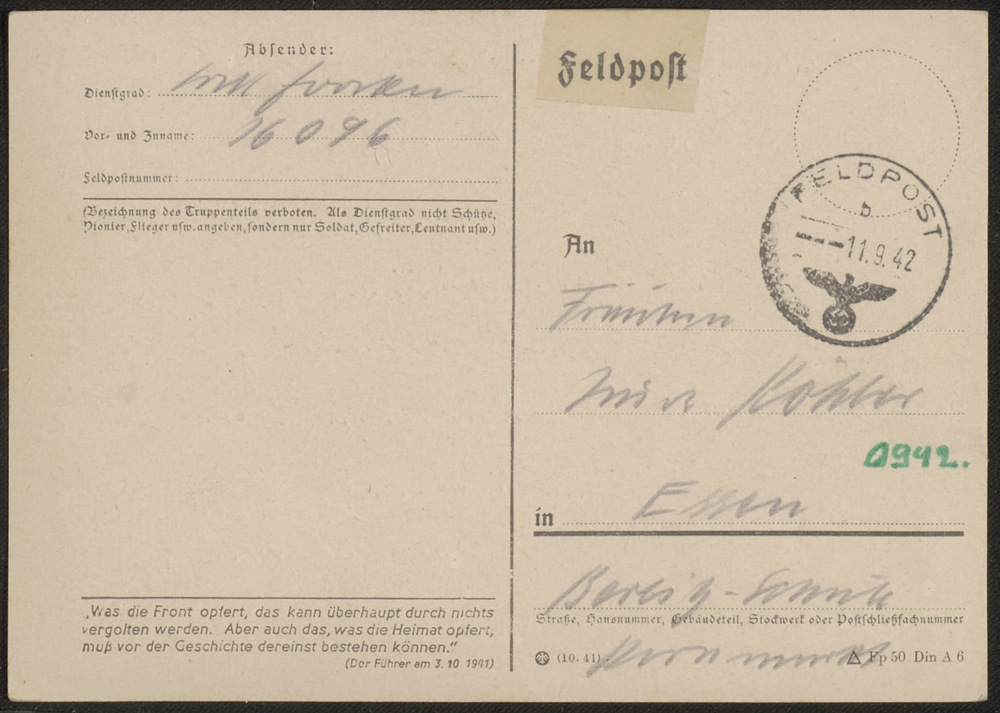 Absender:
Dienstgrad:
Vor- und Zuname: 16096
Feldpostnummer:
(Bezeichnung des Truppenteils verboten. Als Dienstgrad nicht Schütze,
Pionier, Flieger usw. angeben, sondern nur Soldat, Gefreiter, Leutnant usw.)
„Was die Front opfert, das kann überhaupt durch nichts
vergolten werden. Aber auch das, was die Heimat opfert,
muß vor der Geschichte dereinst bestehen können.“
(Der Führer am 3. 10 1941)
Feldpost
FELDPOST
b
11.9.42
An
Fräulein
Köhler
0942.
in Essen
Berlitz-Schule
Straße, Hausnummer, Gebäudeteil, Stockwerk oder Postschließfachnummer
(10. 41)
Fp 50 Din A 6